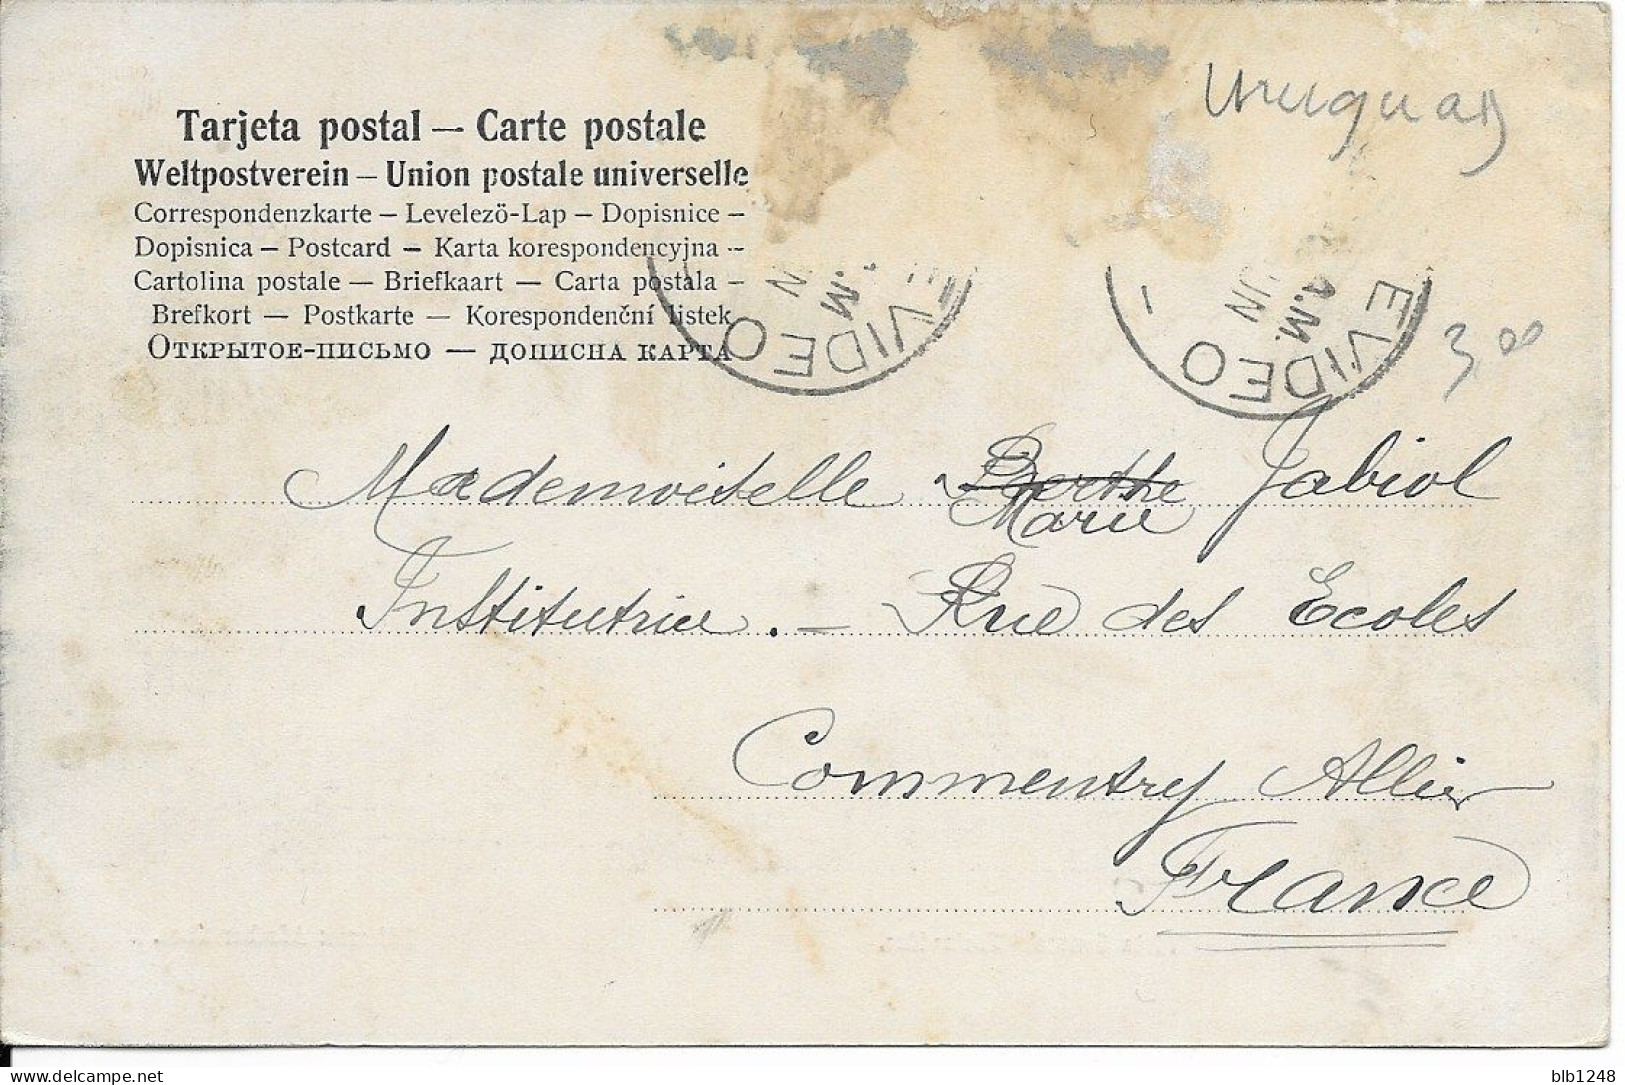 Uruguay
Tarjeta postal — Carte postale
Weltpostverein — Union postale universelle
Correspondenzkarte — Levelezö-Lap — Dopisnice —
Dopisnica — Postcard — Karta korespondencyjna —
Cartolina postale — Briefkaart — Carta postala —
Brefkort — Postkarte — Korespondenční listek
Открытое-письмо — дописна карта
EVIDEO
A.M.
JUN
EVIDEO
.M
3,00
Mademoiselle Berthe Jabiol
Marie
Institutrice. — Rue des Ecoles
Commentry Allier
France
delcampe.net
blb1248